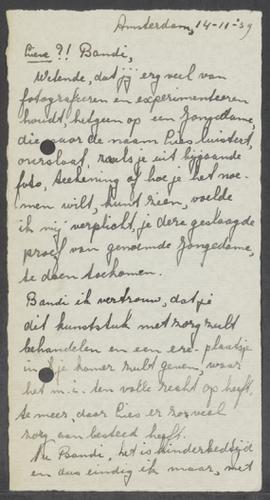 Amsterdam, 14-11-'39
Lieve ?! Bandi,
Wetende, dat jij erg veel van
fotograferen en experimenteren
houdt, hetgeen op een jongedame,
die naar de naam Lies luistert,
oversloeg, zoals je uit bijgaande
foto, teekening of hoe je het noe-
men wilt, kunt zien, voelde
ik mij verplicht, je deze geslaagde
proef van genoemde jongedame,
te doen toekomen.
Bandi ik vertrouw, dat je
dit kunststuk met zorg zult
behandelen en een ere-plaatsje
in je kamer zult geven, waar
het m.i. ten volle recht op heeft
te meer, daar Lies er zoveel
zorg aan besteed heeft.
Nu Bandi, het is kinderbedtijd
en dus eindig ik maar, met